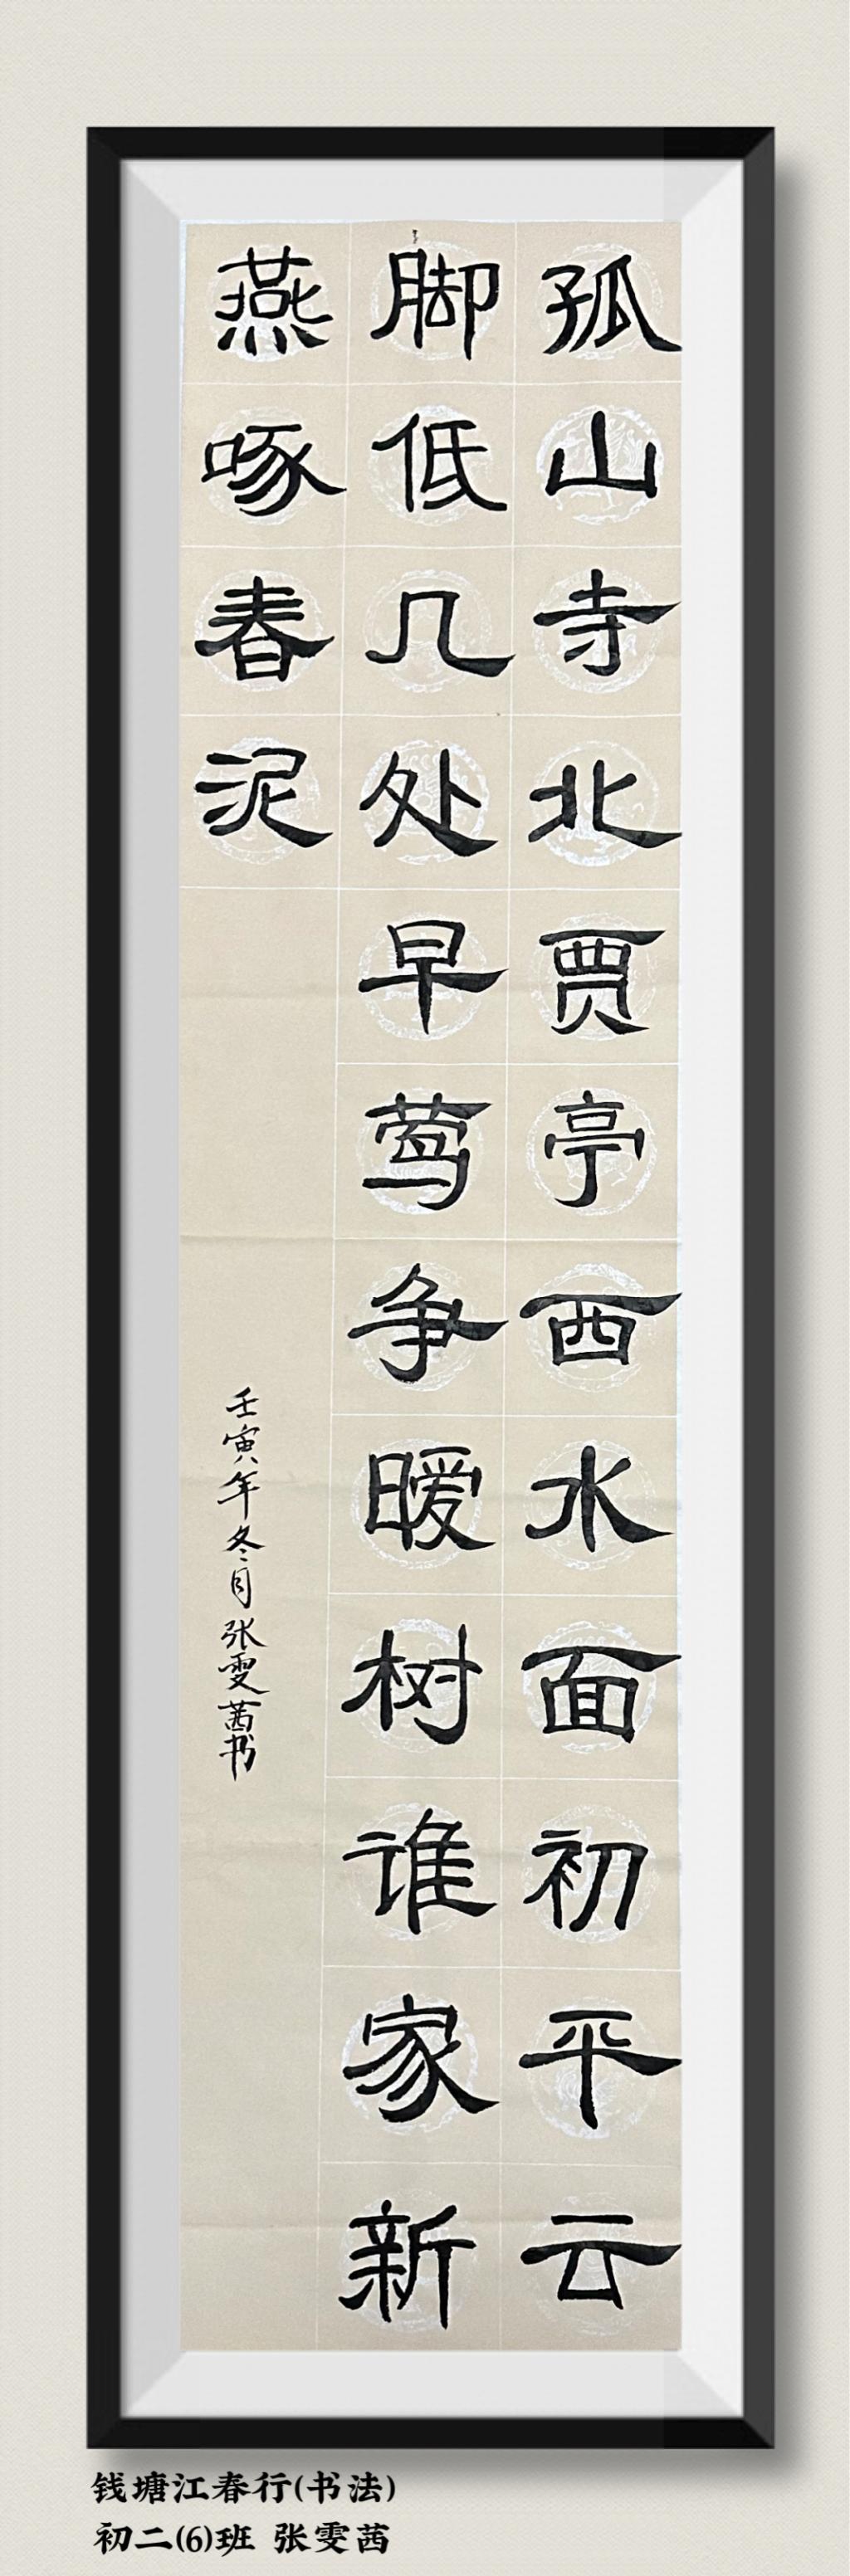 孤山寺北贾亭西水面初平云
脚低几处早莺争暖树谁家新
燕啄春泥
壬寅年冬月张雯茜书
钱塘江春行(书法)
初二(6)班 张雯茜